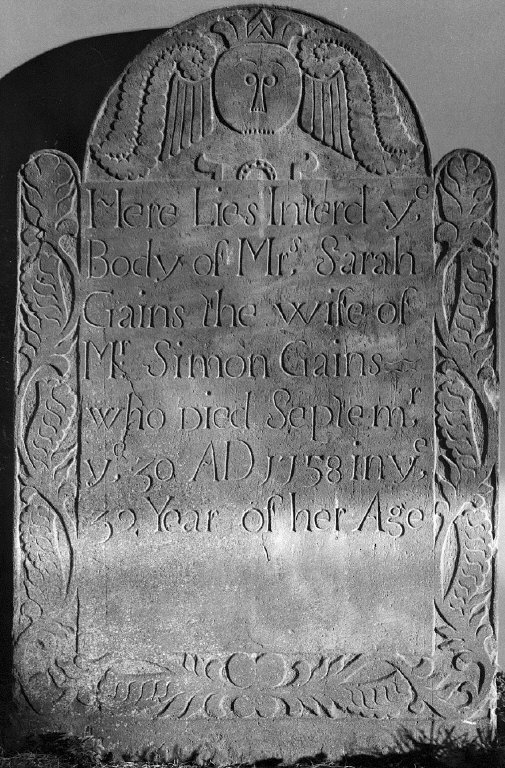 Here Lies Interd yᵉ.
Body of Mrˢ. Sarah
Gains the wife of
Mʳ. Simon Gains
who Died Septemʳ.
yᵉ. 30 AD 1758 in yᵉ.
39, Year of her Age